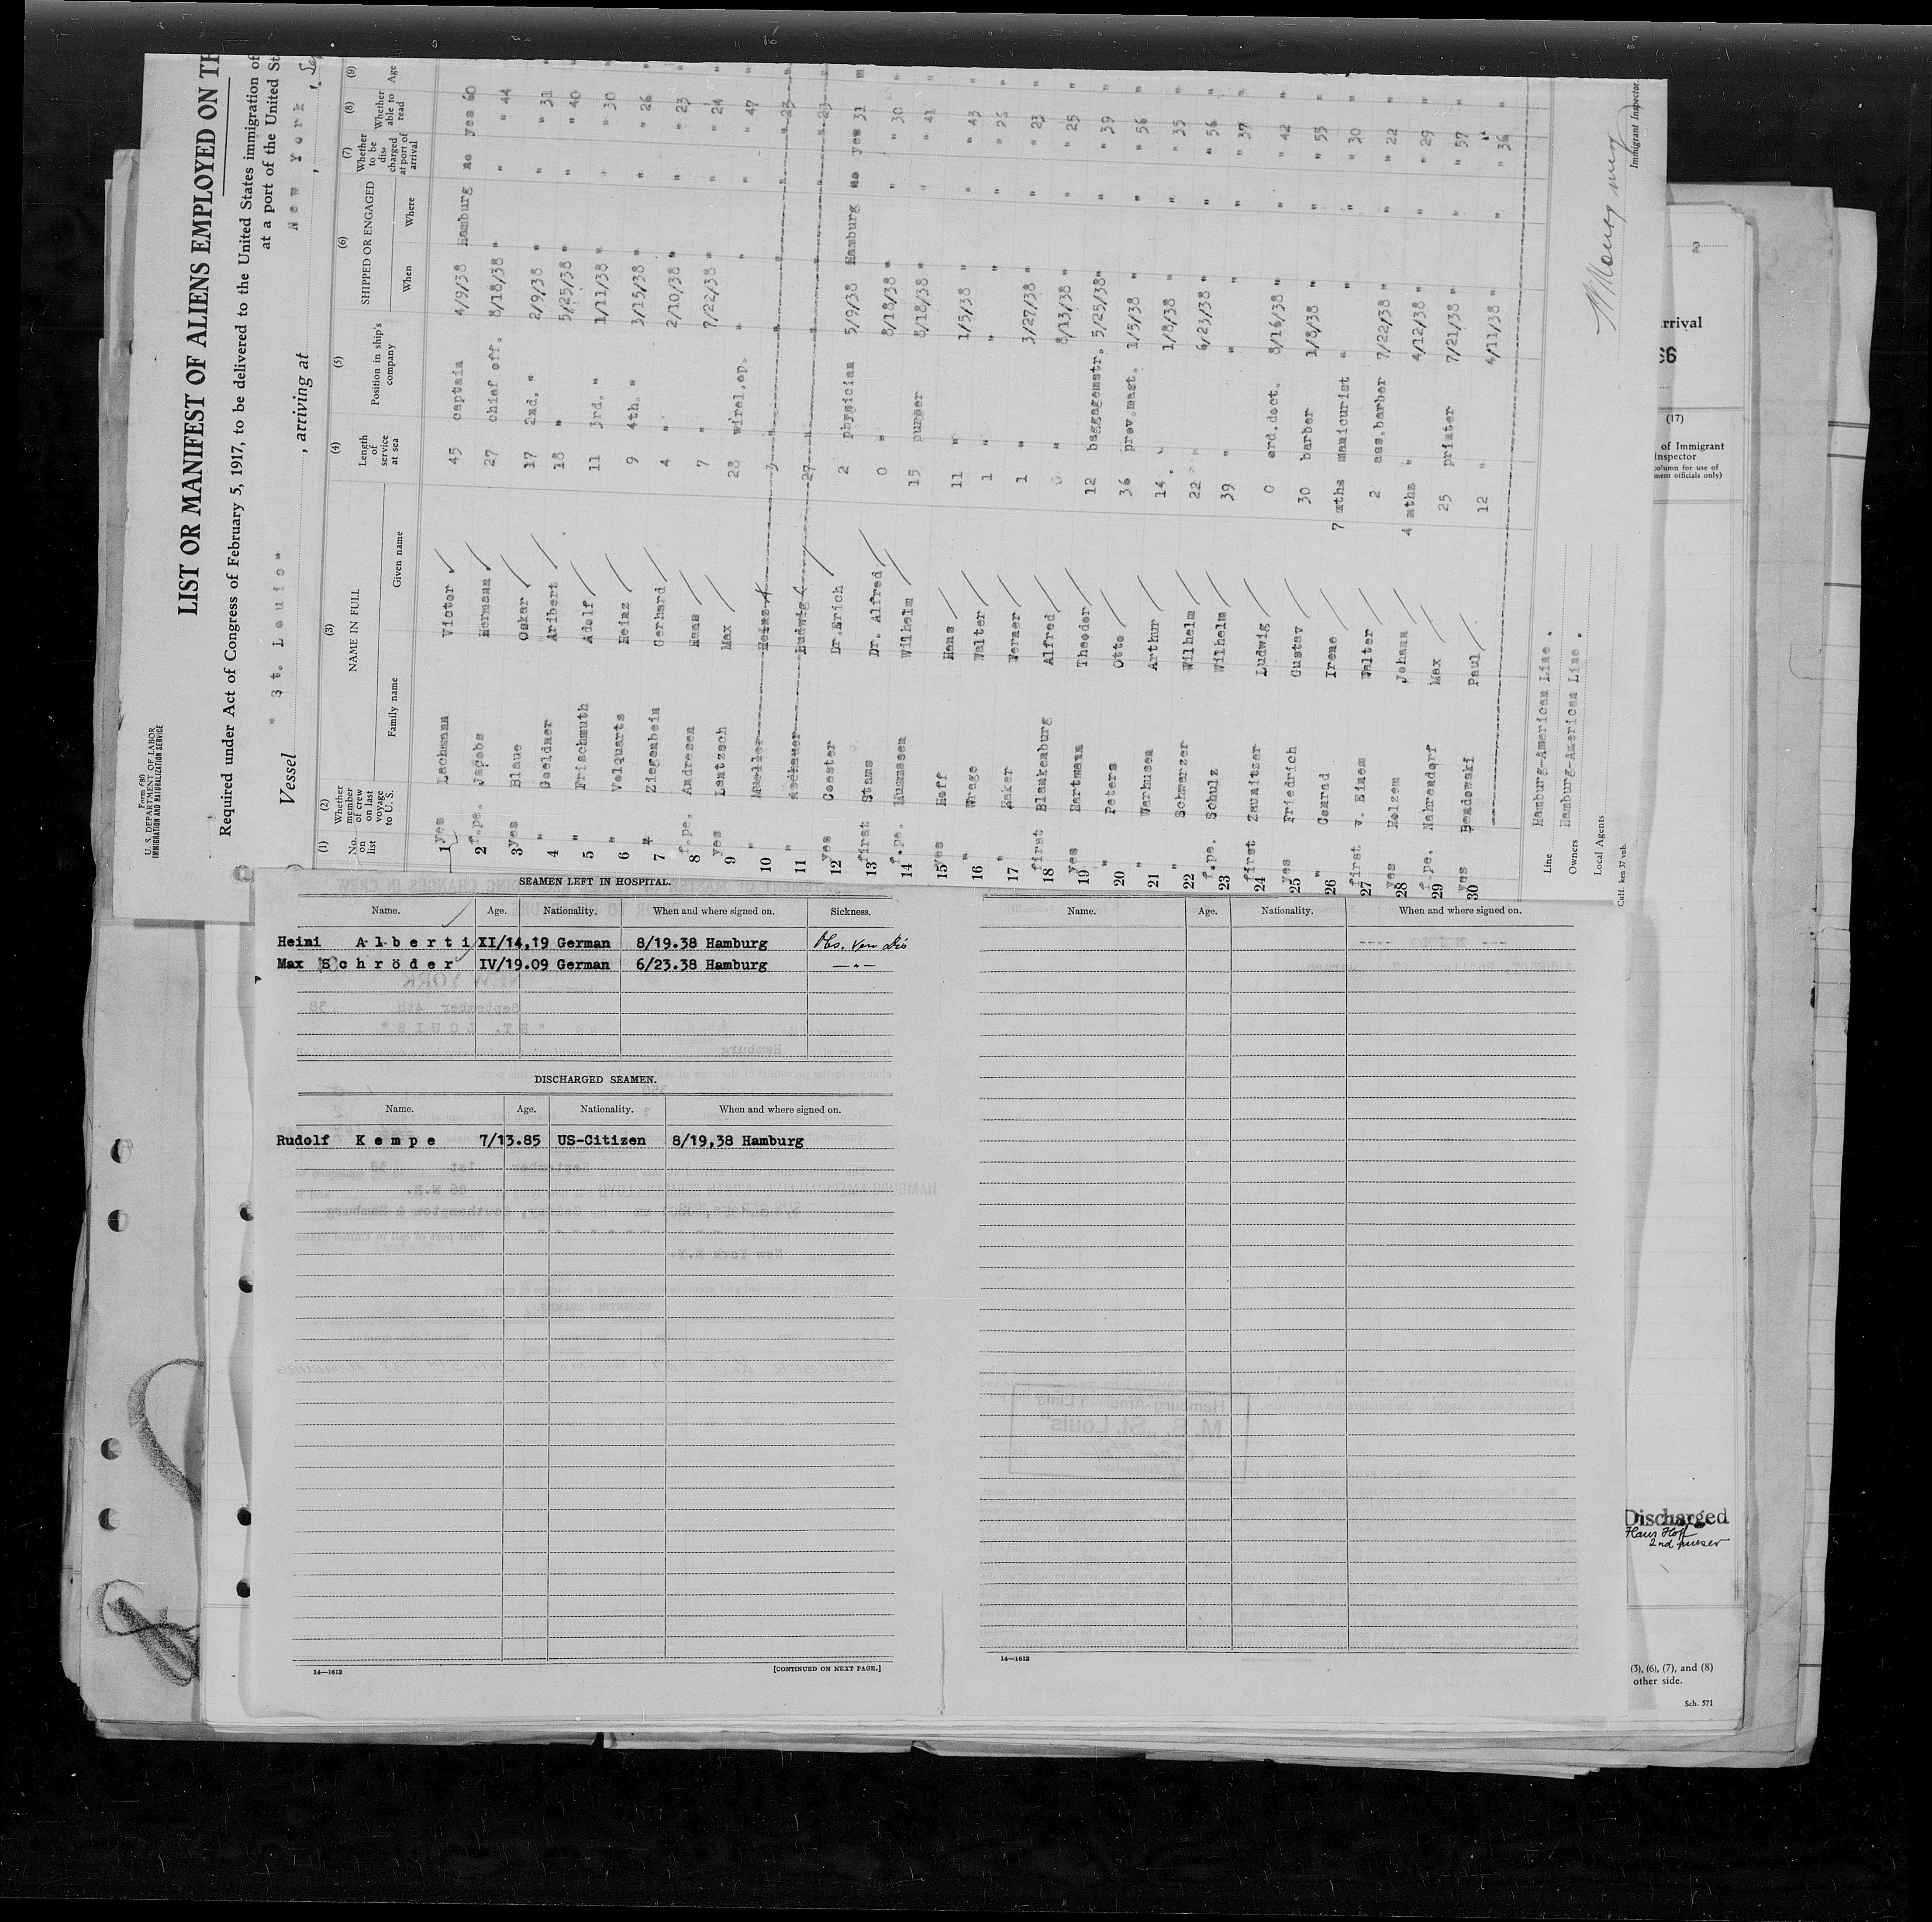 Form 680
U. S. DEPARTMENT OF LABOR
IMMIGRATION AND NATURALIZATION SERVICE
LIST OR MANIFEST OF ALIENS EMPLOYED ON TH
Required under Act of Congress of February 5, 1917, to be delivered to the United States immigration of
at a port of the United St
Vessel " St. Louis " , arriving at New York ,
(1) (2) (3) (4) (5) (6) (7) (8) (9)
No. on list Whether member of crew on last voyage to U. S. NAME IN FULL Length of service at sea Position in ship's company SHIPPED OR ENGAGED Whether to be discharged at port of arrival Whether able to read Age
Family name Given name When Where
1 yes Lachmann Victor 45 captain 4/9/38 Hamburg no yes 60
2 f.pe. Jacobs Hermann 27 chief off. 8/18/38 " " " 44
3 yes Blaue Oskar 17 2nd. " 2/9/38 " " " 31
4 " Goeldner Aribert 18 " 5/25/38 " " " 40
5 " Frischmuth Adolf 11 3rd. " 1/11/38 " " " 30
6 " Volquarts Heinz 9 4th. " 3/15/38 " " " 26
7 " Ziegenbein Gerhard 4 " 2/10/38 " " " 23
8 f.pe. Andresen Hans 7 " 7/22/38 " " " 24
9 yes Lentzsch Max 28 wirel.op. " " " " 47
10 " Moller Heinz 3 " " " " " 23
11 " Aschauer Ludwig 27 " " " " " 23
12 yes Coester Dr.Erich 2 physician 5/9/38 Hamburg no yes 31
13 first Stams Dr. Alfred 0 " 8/18/38 " " " 30
14 f.pe. Mummsen Wilhelm 15 purser 8/18/38 " " " 41
15 yes Hoff Hans 11 " 1/5/38 " " " 43
16 " Wrage Walter 1 " " " " " 26
17 " Kaker Werner 1 " 3/27/38 " " " 23
18 first Blankenburg Alfred 0 " 8/13/38 " " " 25
19 yes Hartmann Theodor 12 baggagemstr. 5/25/38 " " " 39
20 " Peters Otto 36 prov.mast. 1/5/38 " " " 56
21 " Warhusen Arthur 14 " 1/8/38 " " " 35
22 " Schwerzer Wilhelm 22 " 6/23/38 " " " 56
23 f.pe. Schulz Wilhelm 39 " " " " " 37
24 first Zaunitzer Ludwig 0 erd.doct. 8/16/38 " " " 42
25 yes Friedrich Gustav 30 barber 1/8/38 " " " 55
26 " Conrad Irene 7 mths manicurist " " " " 30
27 first v. Einem Walter 2 ass.barber 7/22/38 " " " 22
28 yes Holzem Johann 4 mths " 4/12/38 " " " 29
29 f.pe. Nahrendorf Max 25 printer 7/21/38 " " " 57
30 yes Bendowski Paul 12 " 4/11/38 " " " 36
Line Hamburg-American Line .
Owners Hamburg-American Line .
Local Agents
Immigrant Inspector
SEAMEN LEFT IN HOSPITAL.
Name. Age. Nationality. When and where signed on. Sickness.
Heini Alberti XI/14,19 German 8/19.38 Hamburg
Max Schröder IV/19.09 German 6/23.38 Hamburg —"—
DISCHARGED SEAMEN.
Name. Age. Nationality. When and where signed on.
Rudolf Kempe 7/13.85 US-Citizen 8/19,38 Hamburg
14—1613 [CONTINUED ON NEXT PAGE.]
Name. Age. Nationality. When and where signed on.
14—1613
rrival
66
(17)
of Immigrant
Inspector
column for use of
ment officials only)
Discharged
Hans Hoff
2nd purser
(3), (6), (7), and (8)
other side.
Sch. 571